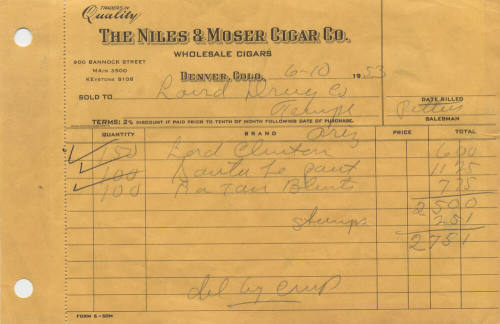 TRADERS IN
Quality
THE NILES & MOSER CIGAR CO.
WHOLESALE CIGARS
900 BANNOCK STREET
MAIN 3500
KEYSTONE 5108
DENVER, COLO. 6-10 1953
SOLD TO Laird Drug Co
Tempe
Ariz
DATE BILLED
SALESMAN
TERMS: 2% DISCOUNT IF PAID PRIOR TO TENTH OF MONTH FOLLOWING DATE OF PURCHASE.
QUANTITY BRAND PRICE TOTAL
150 Lord Clinton 6 00
100 Santa Fe 11 25
100 Blunts 7 75
25 00
stamps 2 51
27 51
del by
FORM 6-50M